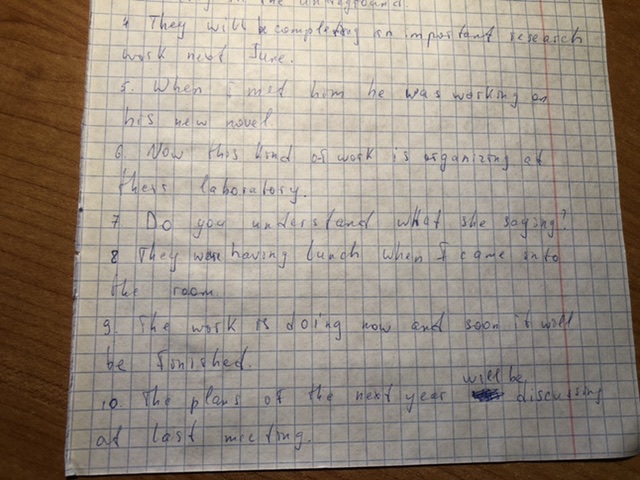 in the underground.
4 They will completing an important research
work next June.
5. When I met him he was working on
his new novel.
6. Now this kind of work is organizing at
theis laboratory.
7 Do you understand what she saying?
8 They were having lunch when I came into
the room.
9. The work is doing now and soon it will
be finished.
10 The plans of the next year will be discussing
at last meeting.